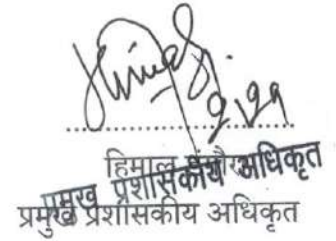 २।११
....................
हिमाल
प्रमुख प्रशासकीय अधिकृत
प्रमुख प्रशासकीय अधिकृत